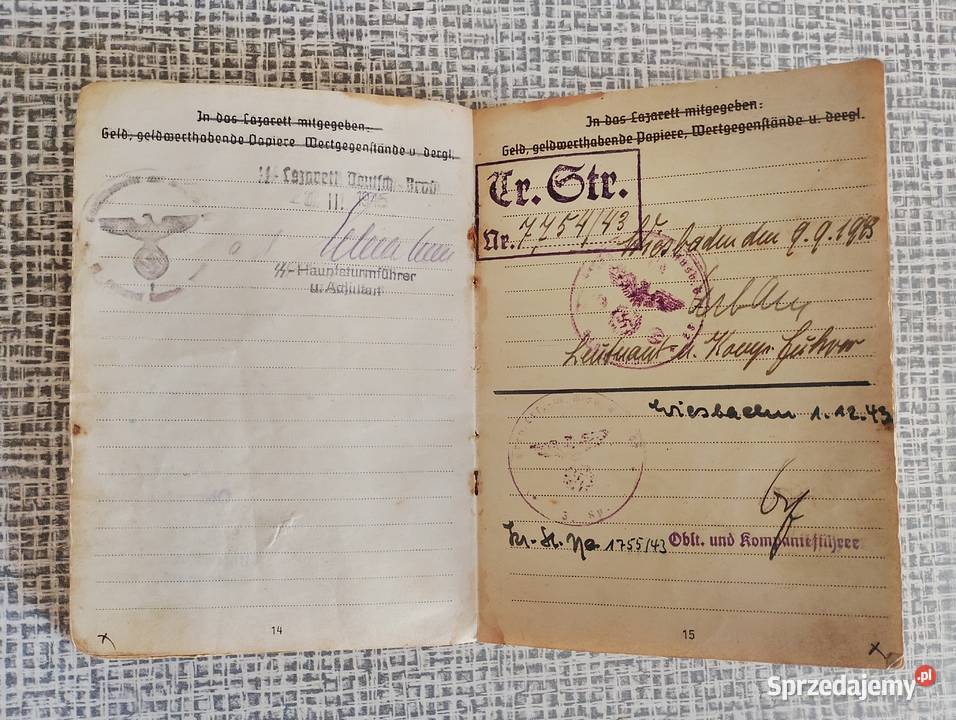 In das Lazarett mitgegeben:
Geld, geldwerthabende Papiere Wertgegenstände u dergl.
Lazarett Deutsch-Brod
II. 1945
SS-Hauptsturmführer
u. Adjutant
14
In das Lazarett mitgegeben:
Geld, geldwerthabende Papiere, Wertgegenstände u. dergl.
Tr. Str.
Nr. 7754/43
Wiesbaden den 9.9.1943
Leutnant u. Komp. Führer
Wiesbaden 1.12.43
1755/43 Oblt. und Kompanieführer
15
Sprzedajemy.pl